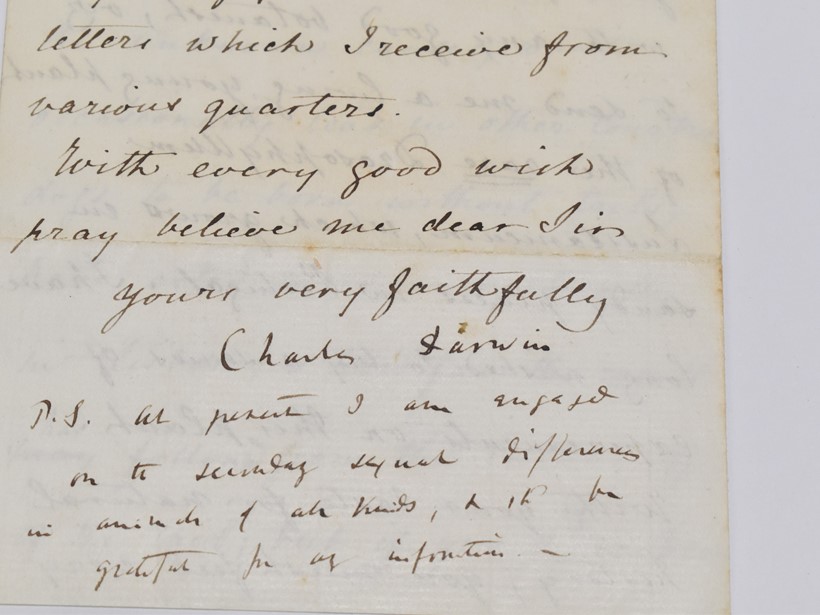 letters which I receive from
various quarters.
With every good wish
pray believe me dear Sir
yours very faithfully
Charles Darwin
P.S. At present I am engaged
on the secondary sexual differences
in animals of all kinds, & shd be
grateful for any information. —